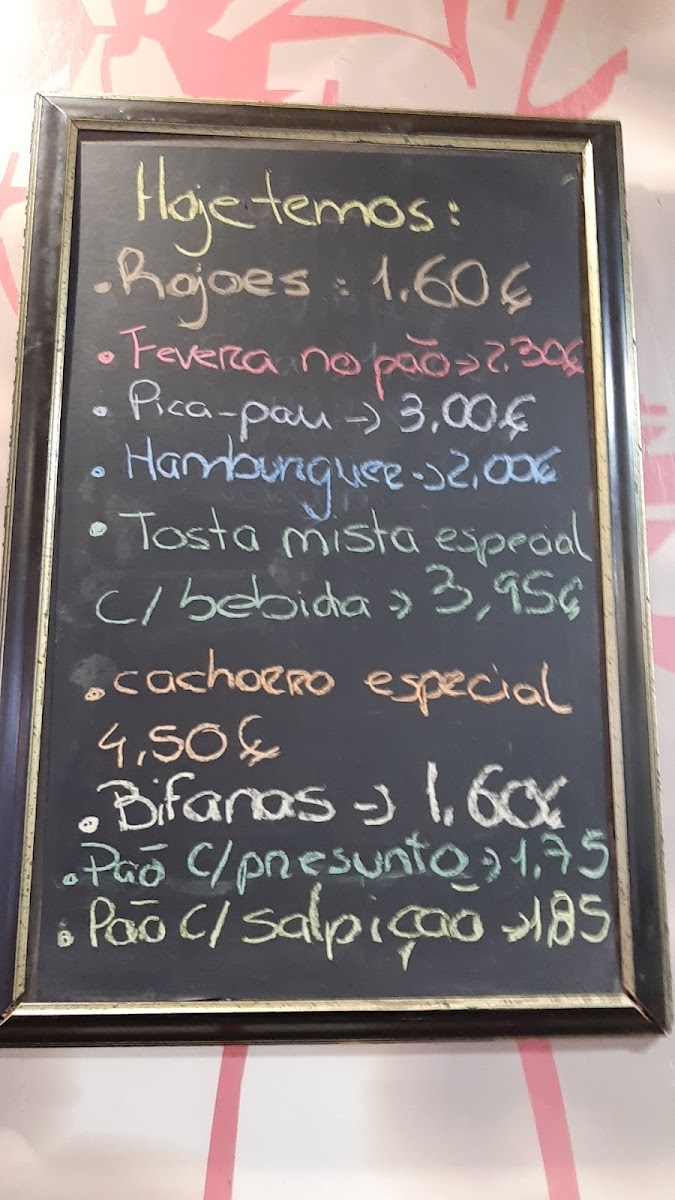 Hoje temos:
. Rojoes : 1.60€
• Fevera no pão -> 2.30€
• Pica-pau -> 3,00€
• Hamburguer -> 2,00€
• Tosta mista especial
c/ bebida -> 3,95€
• cachorro especial
4,50€
• Bifanas -> 1.60€
• Pão c/ presunto -> 1,75
• Pão c/ salpição -> 1,85